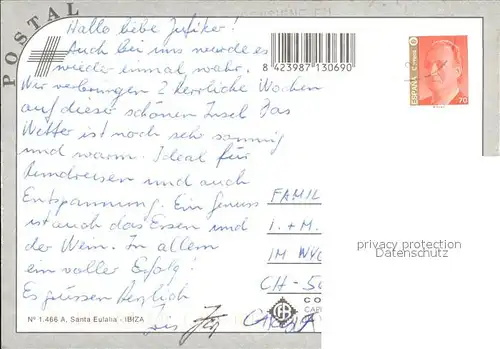 POSTAL
Hallo liebe Zufiker!
Auch bei uns wurde es
wieder einmal wahr.
Wir verbringen 2 herrliche Wochen
auf dieser schönen Insel. Das
Wetter ist noch sehr sonnig
und warm. Ideal für
Rundreisen und auch
Entspannung. Ein Genuss
ist auch das Essen und
der Wein. In allem
ein voller Erfolg!
Es grüssen herzlich
8 423987 130690
ESPAÑA
70
FAMIL
I. + M.
IM
CH-
privacy protection
Datenschutz
Nº 1.466 A, Santa Eulalia - IBIZA
CO